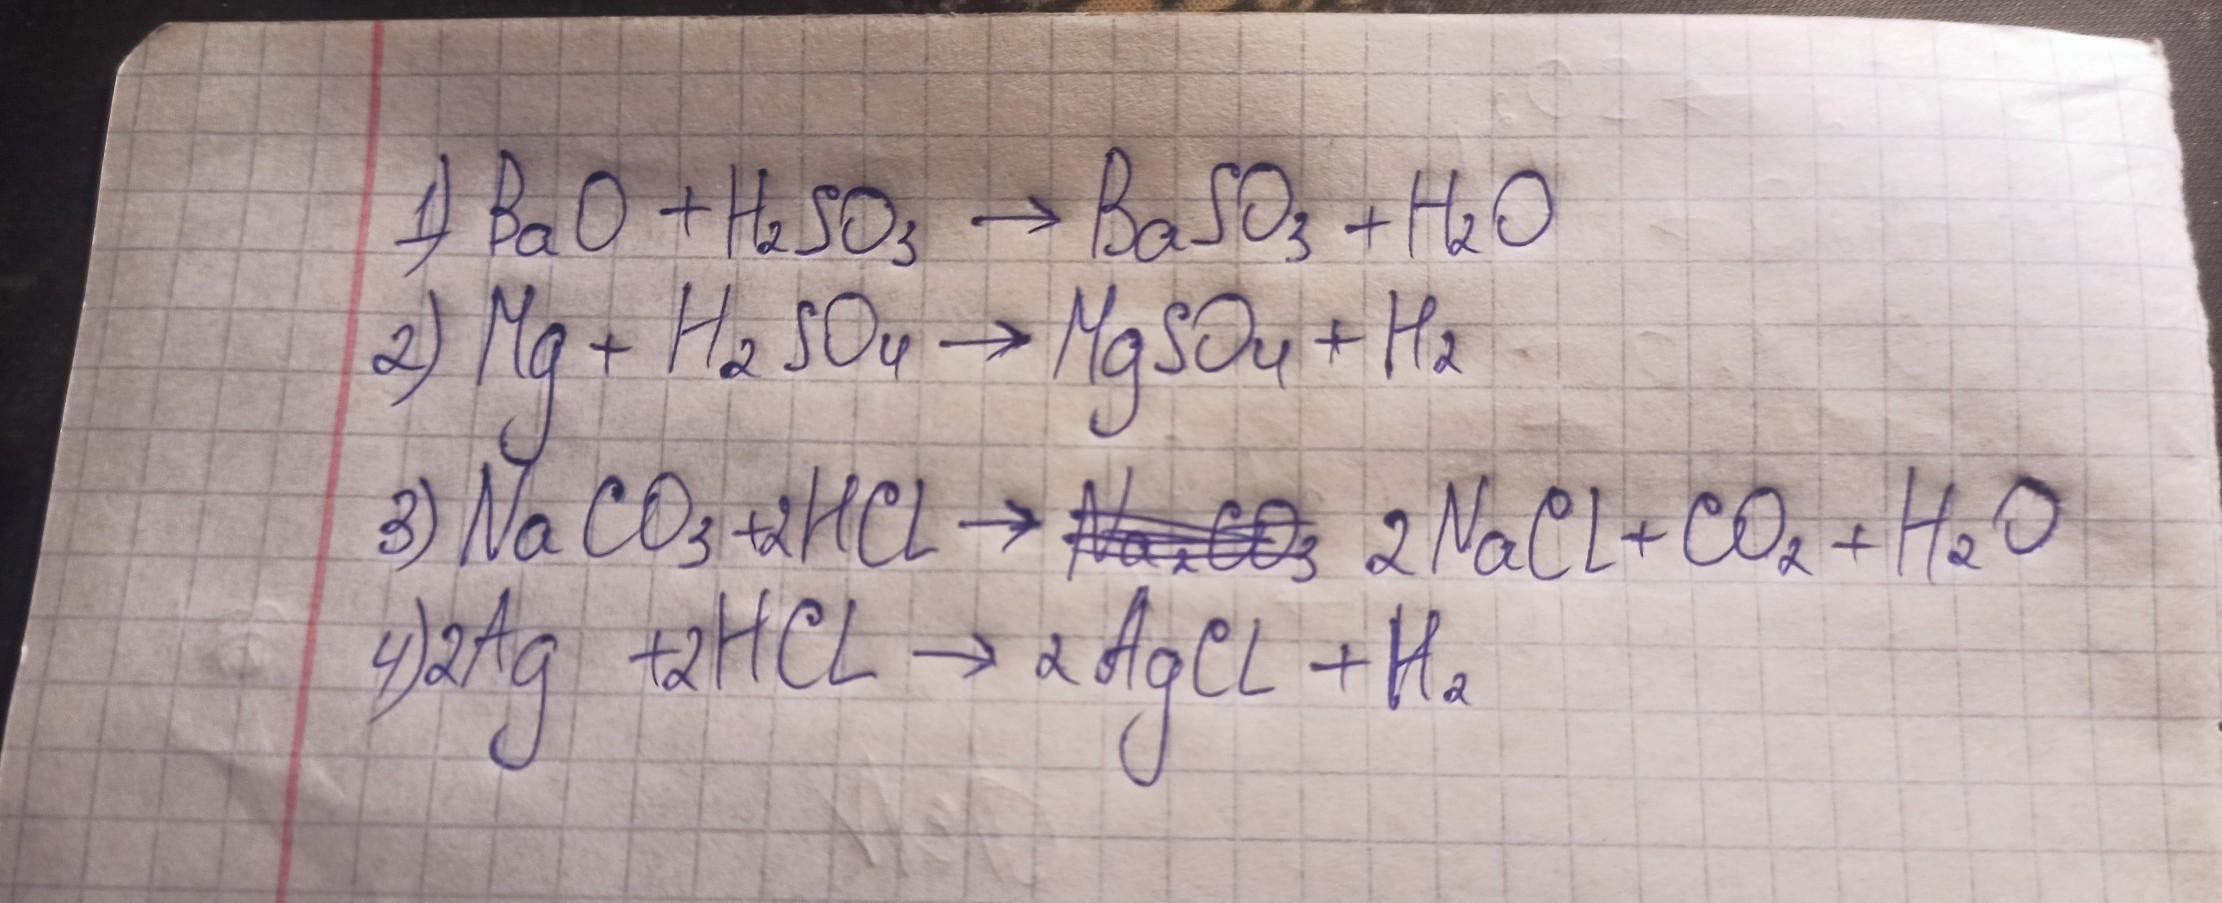 1) BaO + H₂SO₃ → BaSO₃ + H₂O
2) Mg + H₂SO₄ → MgSO₄ + H₂
3) NaCO₃ + 2HCL → Na₂CO₃ 2NaCl + CO₂ + H₂O
4) 2Ag + 2HCL → 2AgCL + H₂